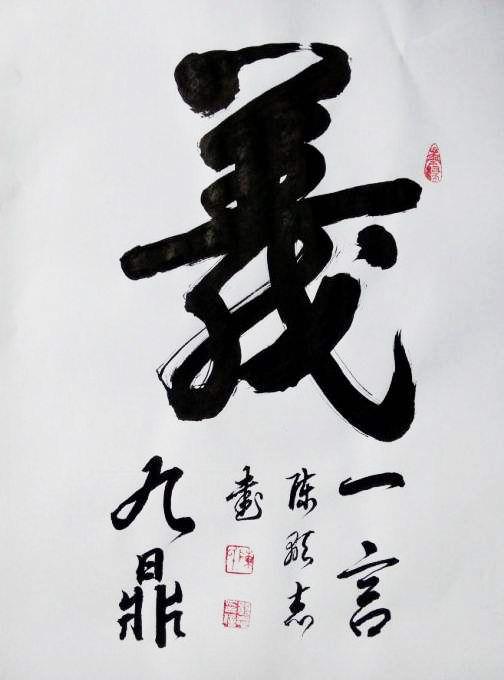 義
一言
陈志
書
九鼎